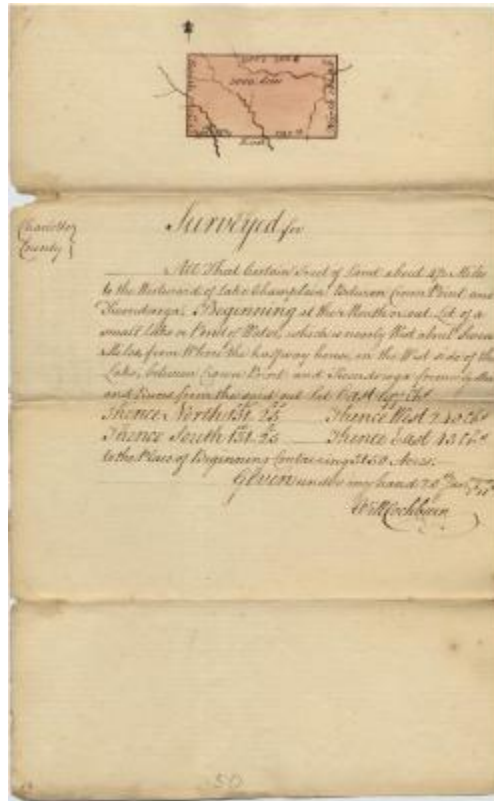 3000 Acres
Surveyed for
Charlotte
County
All That Certain Tract of Land about 4½ Miles
to the Westward of Lake Champlain Between Crown Point and
Ticonderoga. Beginning at the Mouth or out Let of a
small Lake or Pond of Water, which is nearly West about
Miles, from Where the halfway house, on the West side of the
Lake, between Crown Point and Ticonderoga formerly
and Runs from the said out Let East Chs
Thence North 131.25 Thence West 240 Chs
Thence South 131.25 Thence East
to the Place of Beginning Containing 3150 Acres.
Given under my hand
Will Cockburn
50